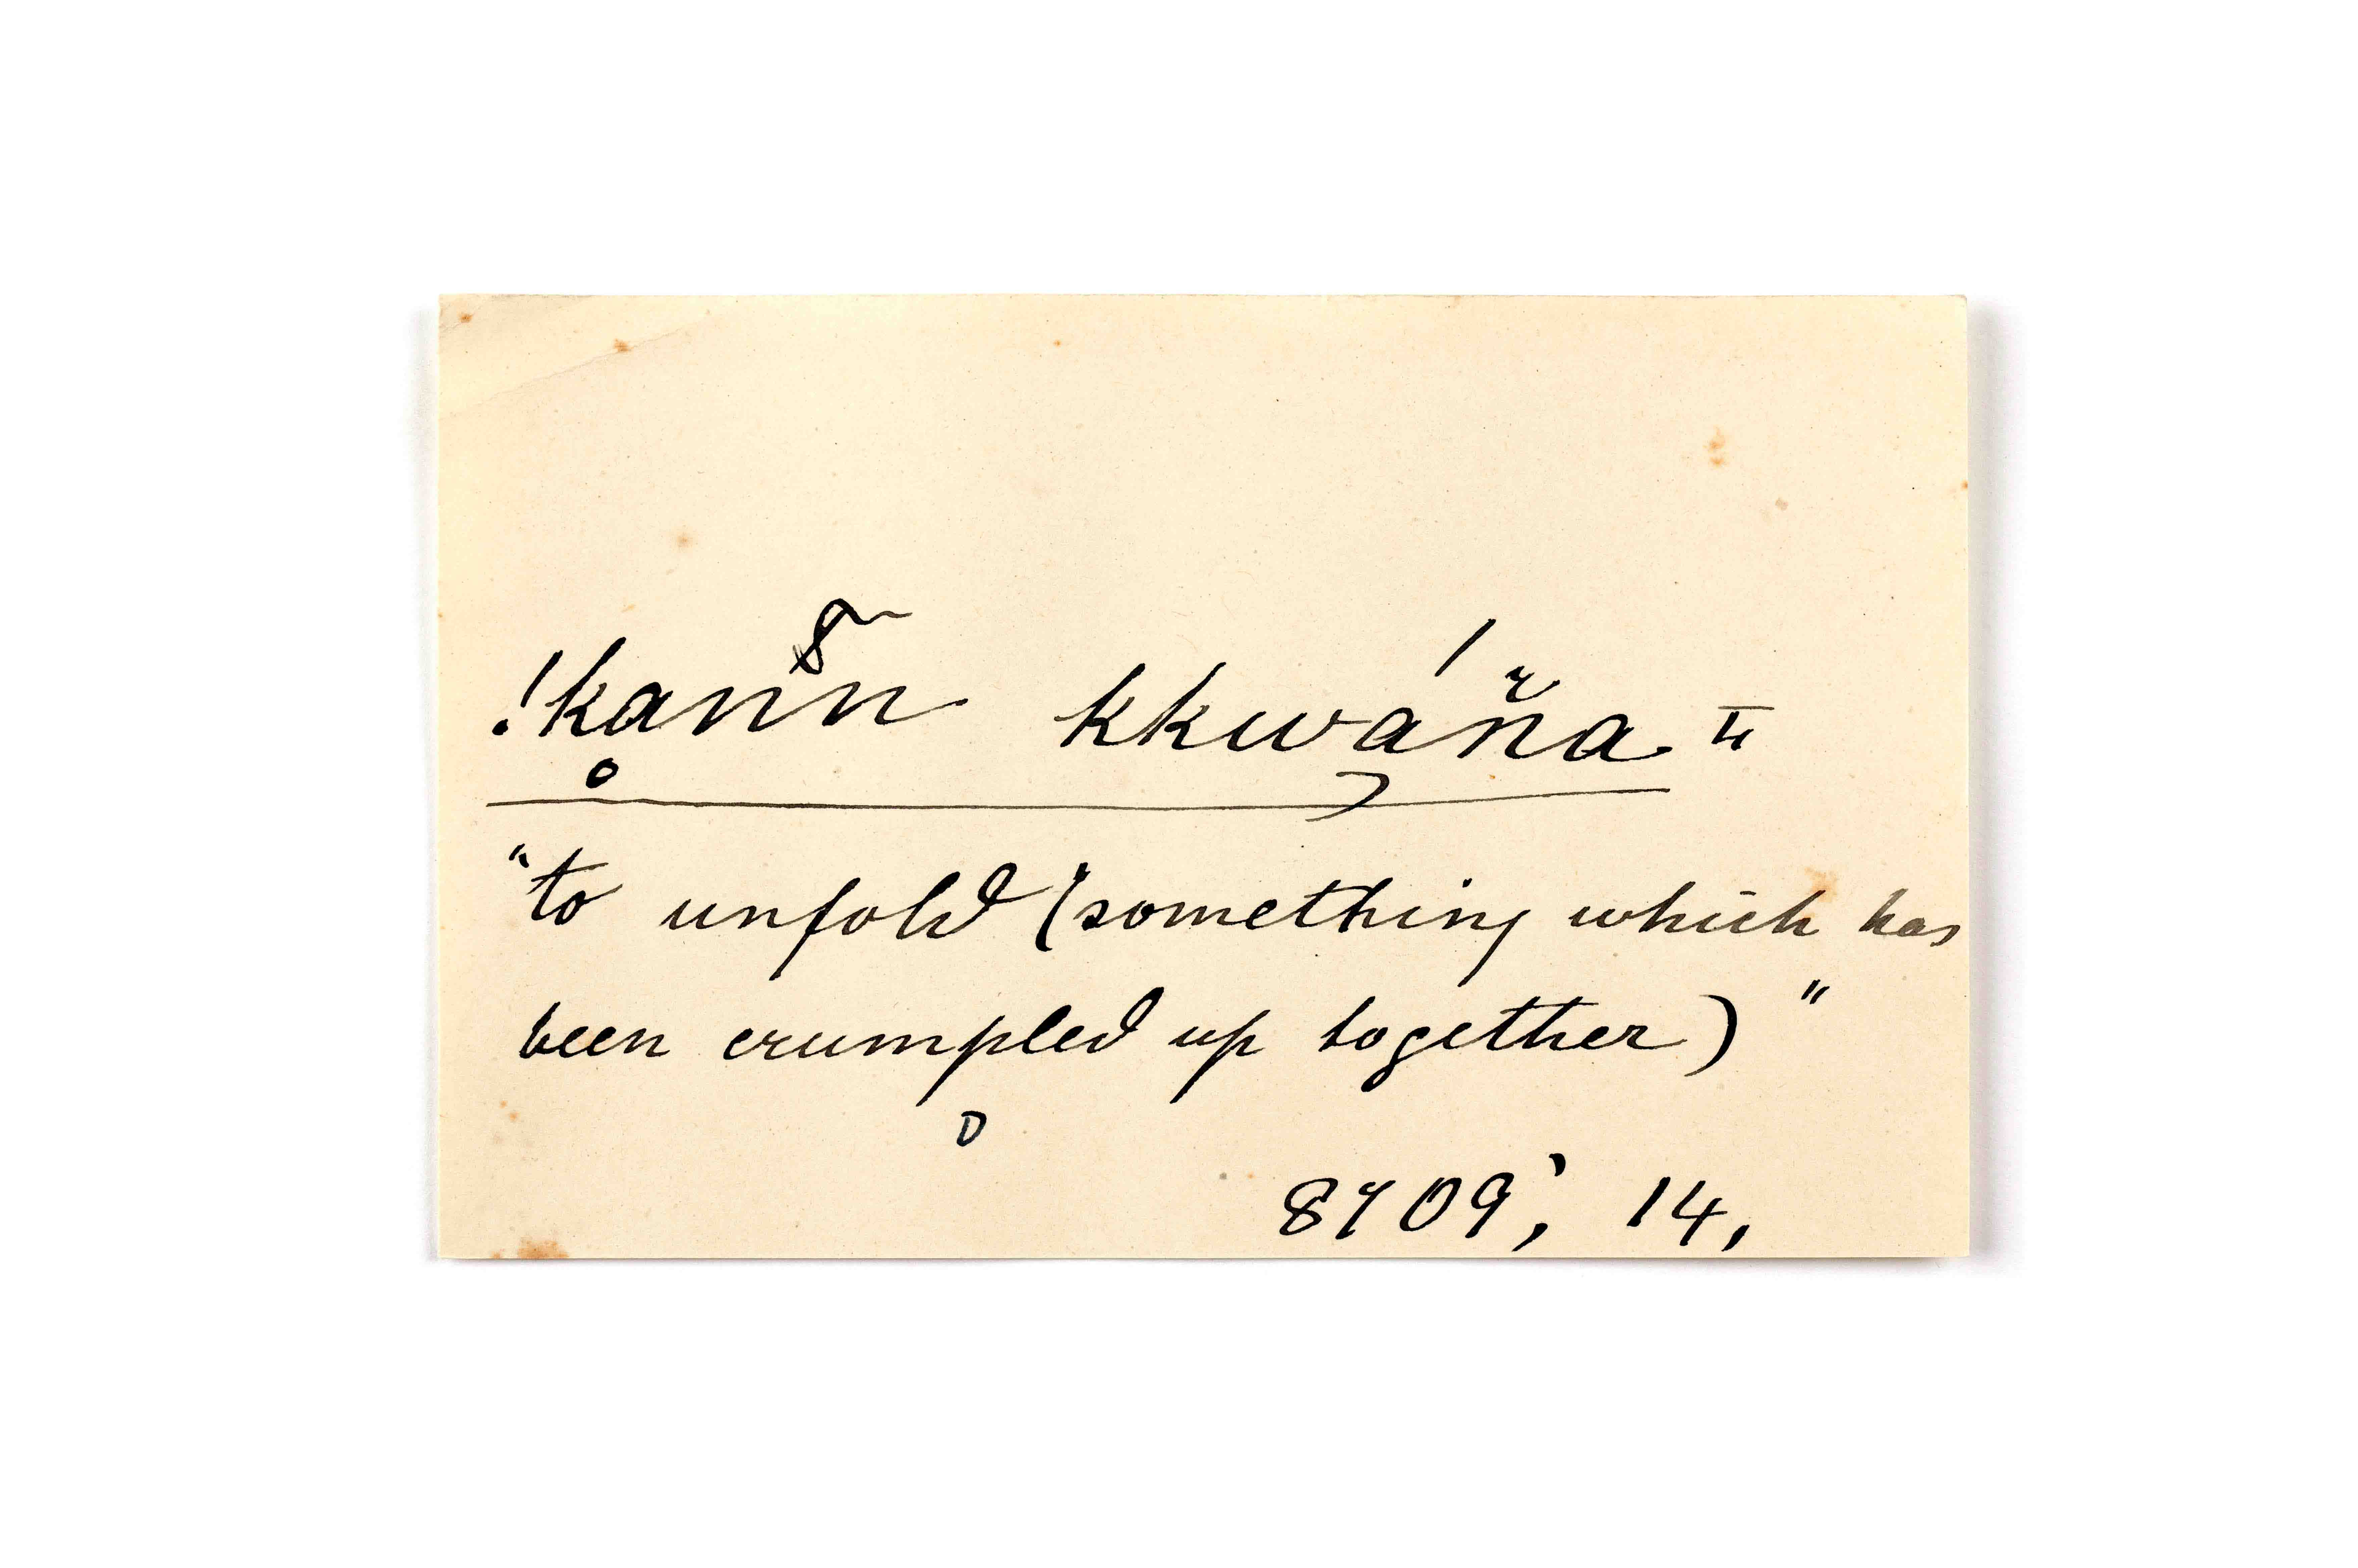 !kan̈n kkwáṅ̆a II
"to unfold (something which has
been crumpled up together)"
D
8709; 14,